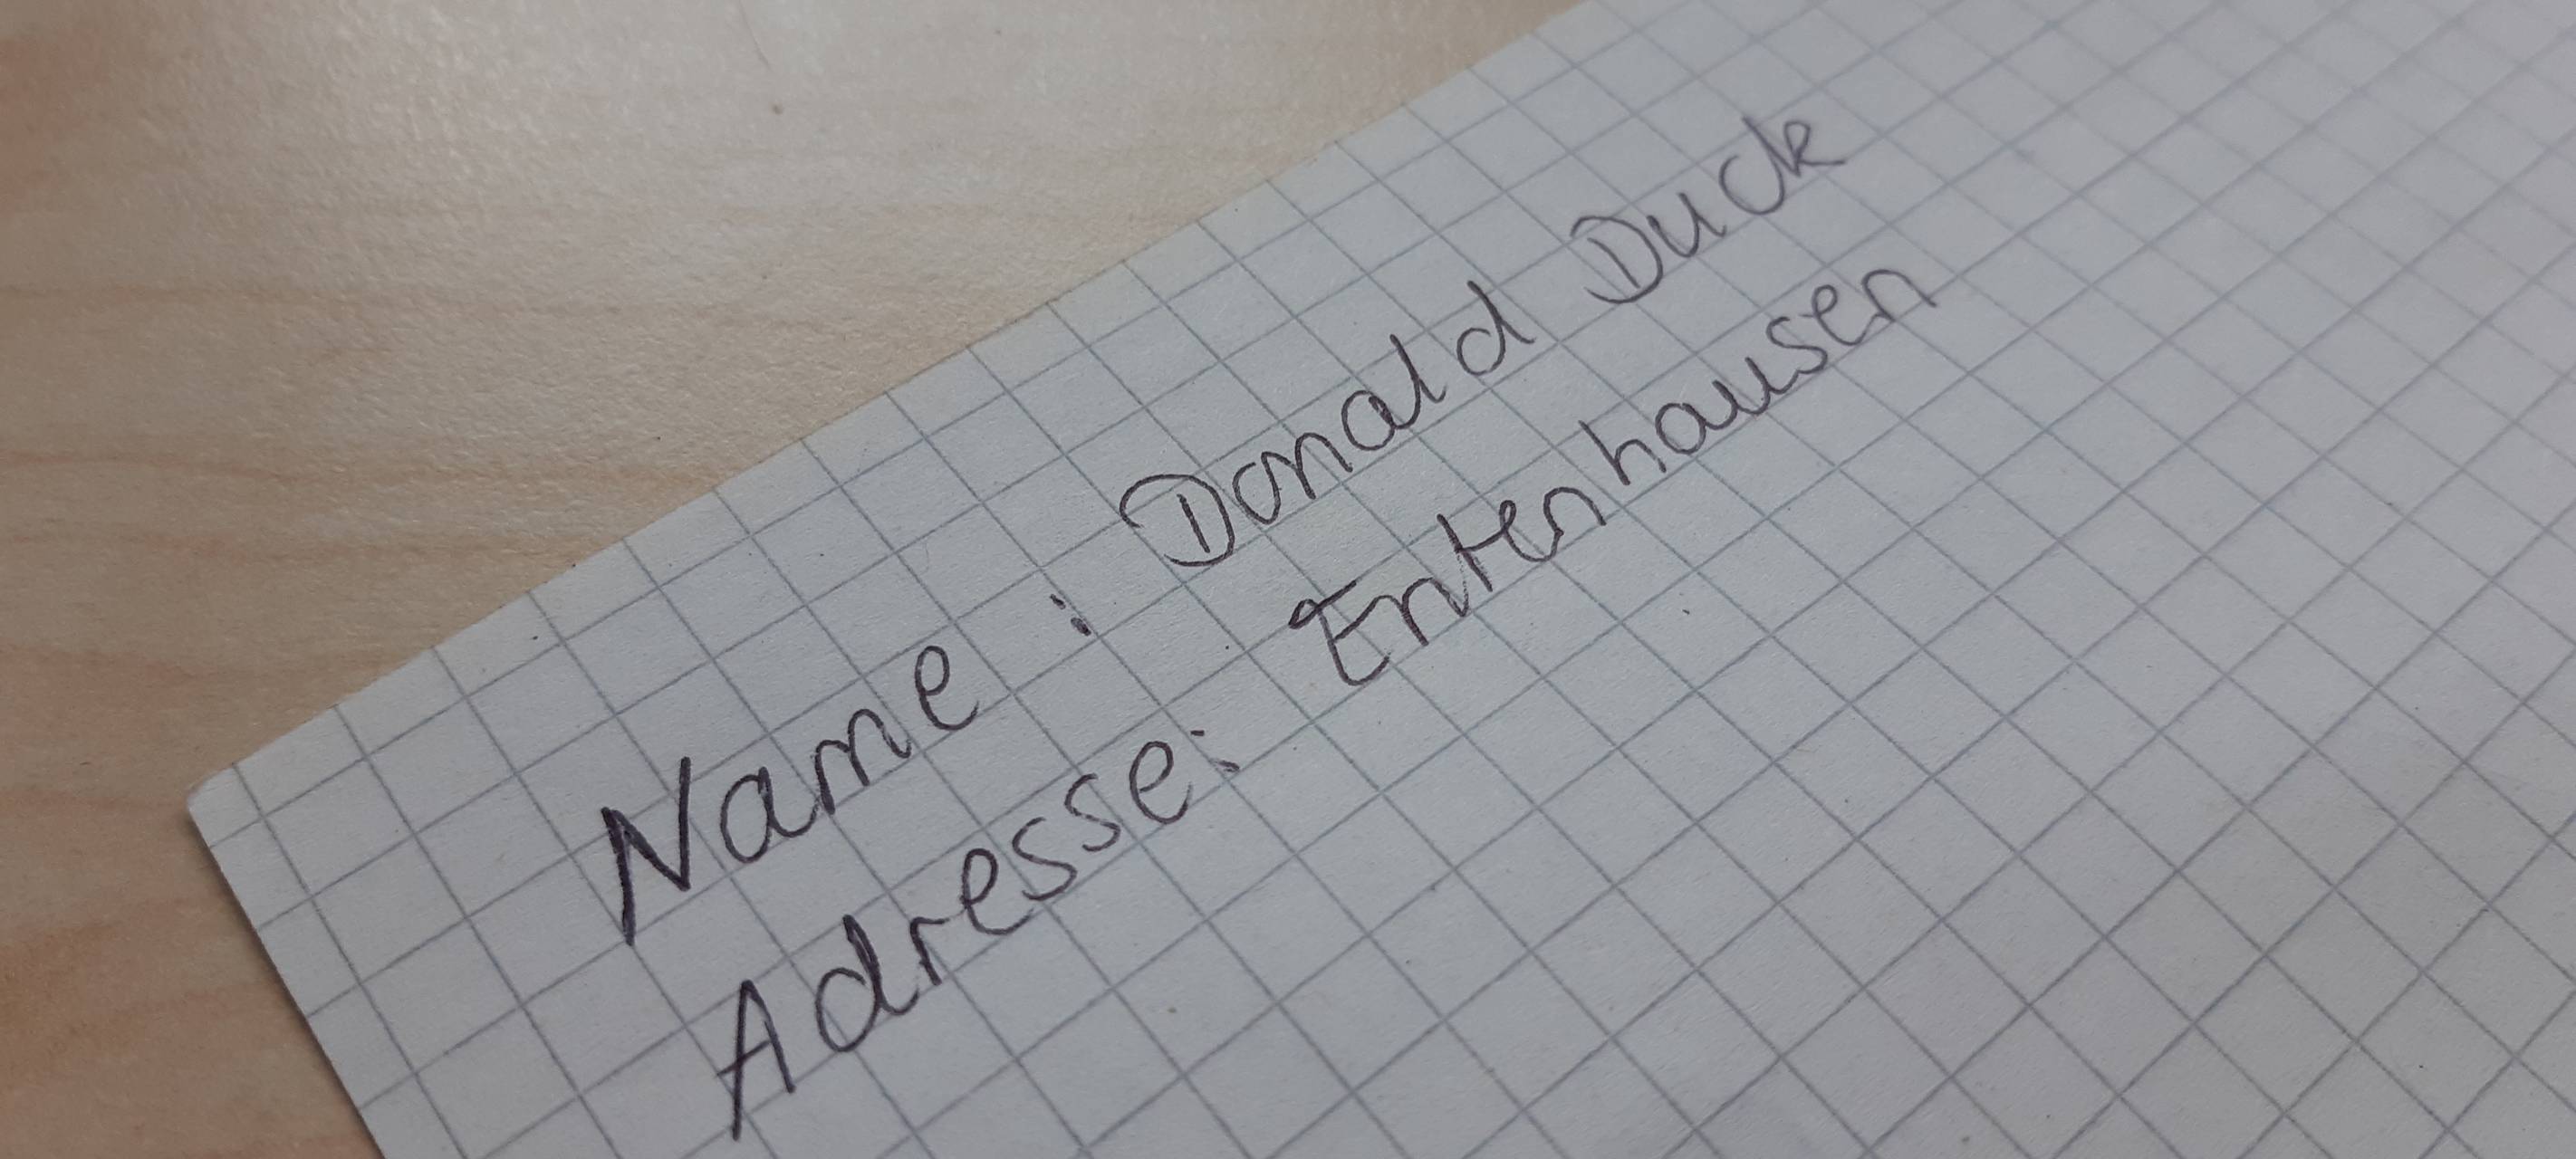 Name: Donald Duck
Adresse: Entenhausen